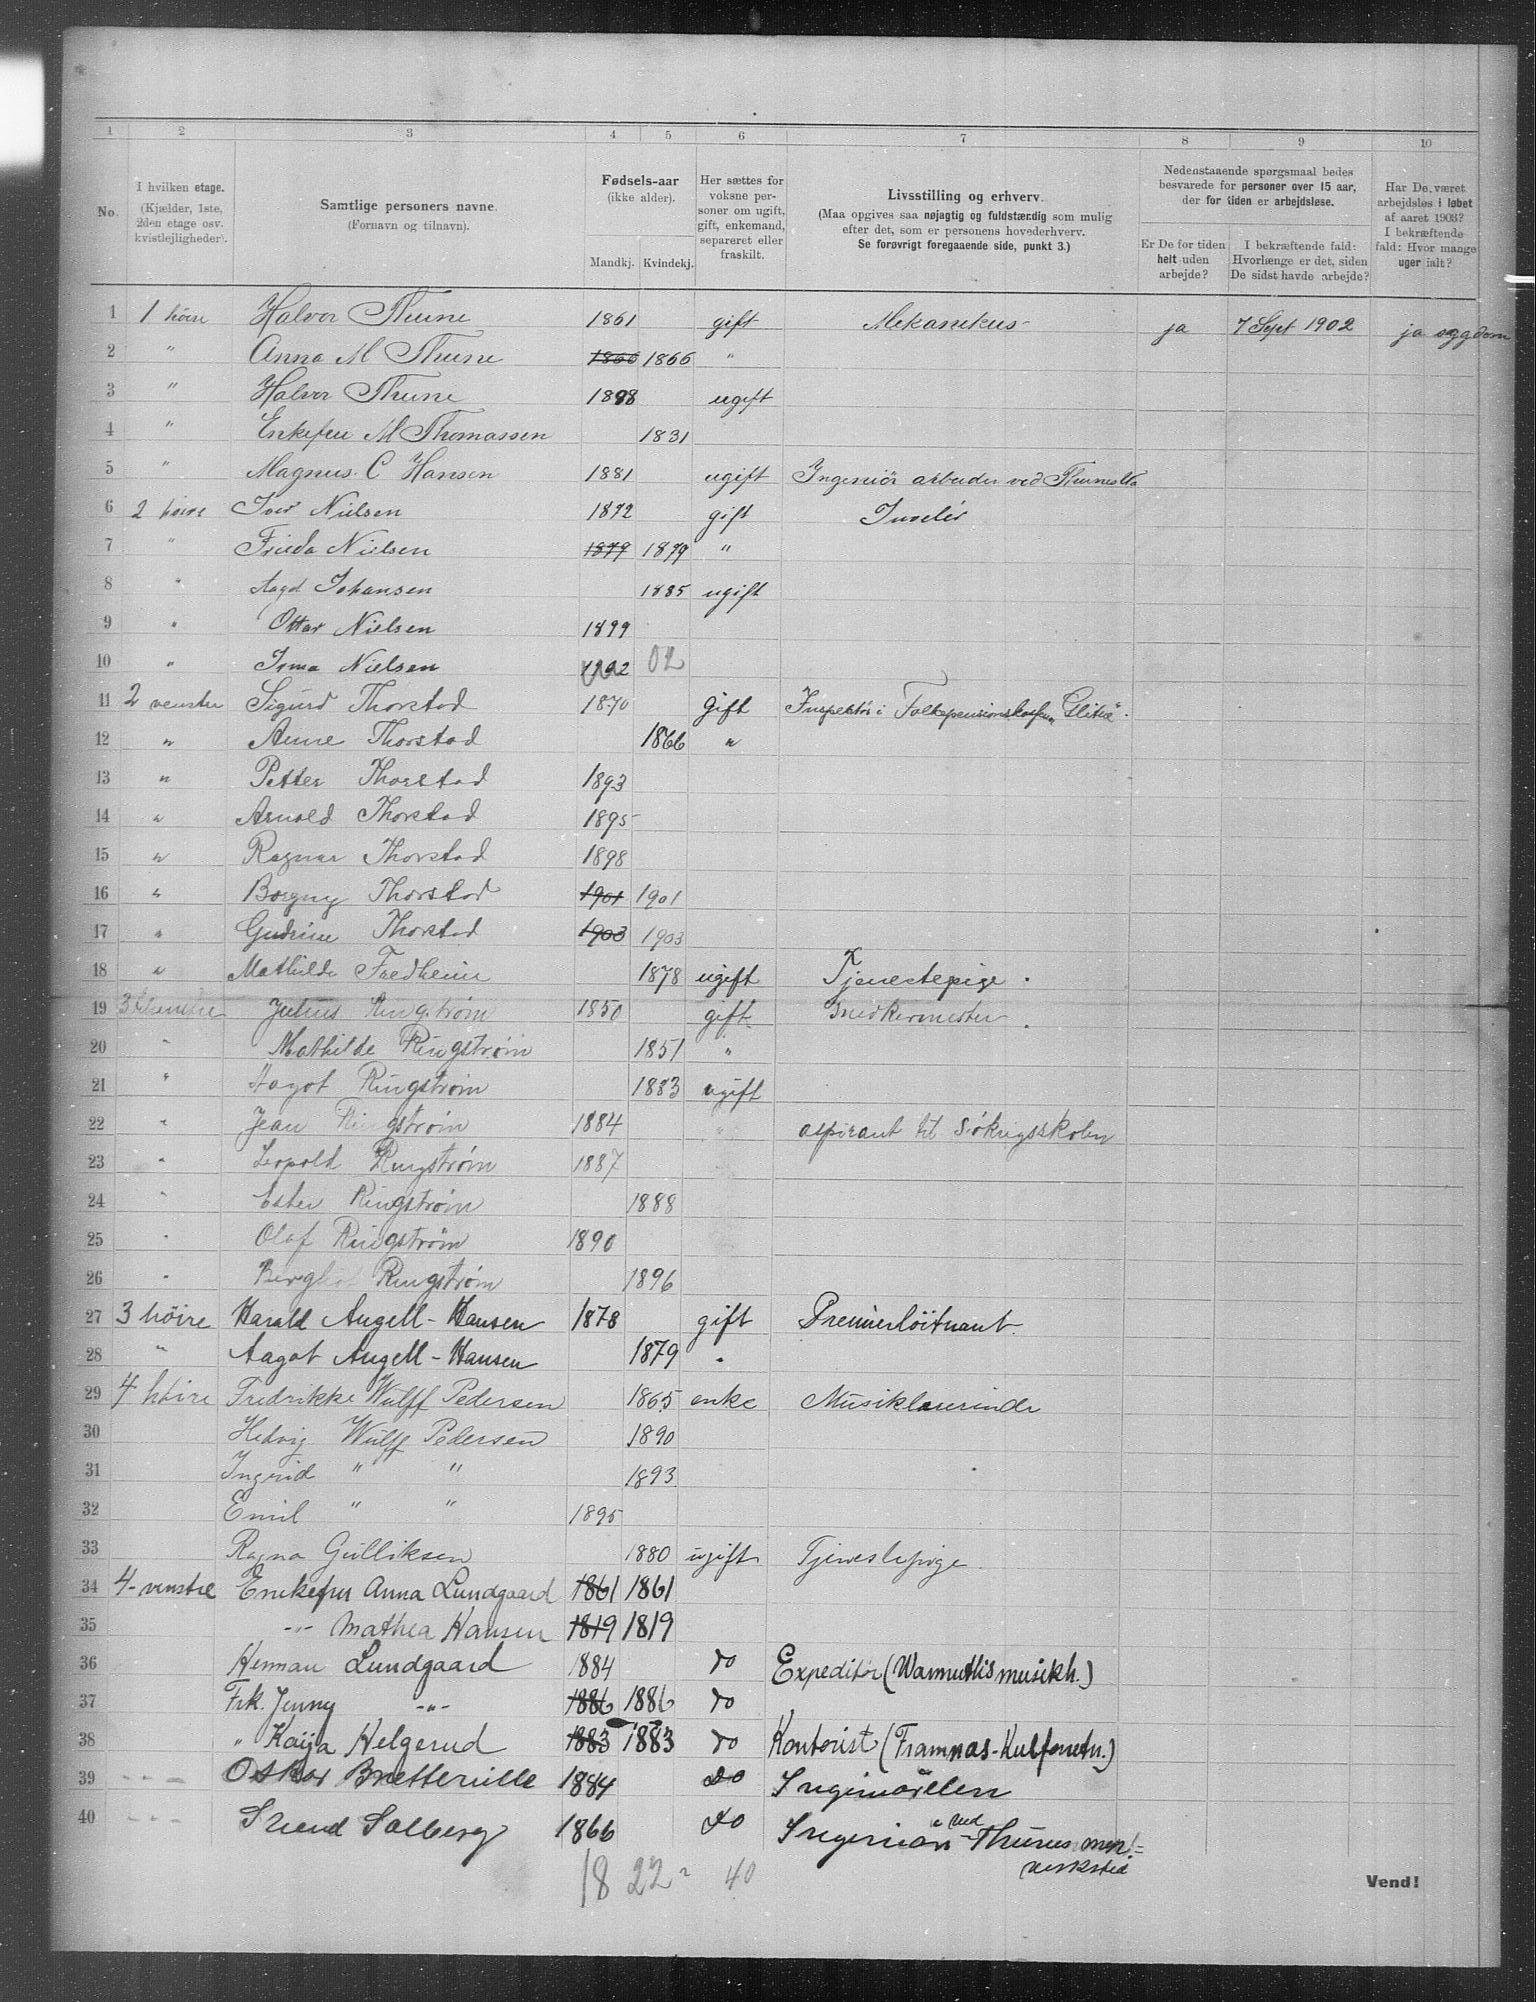 1 2 3 4 5 6 7 8 9 10
No.
I hvilken etage.
(Kjælder, 1ste,
2den etage osv.
kvistlejligheder).
Samtlige personers navne.
(Fornavn og tilnavn).
Fødsels-aar
(ikke alder).
Mandkj. Kvindekj.
Her sættes for
voksne per-
soner om ugift,
gift, enkemand,
separeret eller
fraskilt.
Livsstilling og erhverv.
(Maa opgives saa nøjagtig og fuldstændig som mulig
efter det, som er personens hovederhverv.
Se forøvrigt foregaaende side, punkt 3.)
Nedenstaaende spørgsmaal bedes
besvarede for personer over 15 aar,
der for tiden er arbejdsløse.
Er De for tiden
helt uden
arbejde?
I bekræftende fald:
Hvorlænge er det, siden
De sidst havde arbejde?
Har De været
arbejdsløs i løbet
af aaret 1903?
I bekræftende
fald: Hvor mange
uger ialt?
1 1 höire Halvor Thune 1861 gift Mekanikus ja 7 Sept 1902 ja
2 " Anna M Thune 1866 1866 "
3 " Halvor Thune 1898 ugift
4 " Enkefru M Thomassen 1831
5 " Magnus C Hansen 1881 ugift Ingeniör arbeider ved Thunes
6 2 höire Iver Nielsen 1872 gift Juvelér
7 " Frieda Nielsen 1879 1879 "
8 " Aagot Johansen 1885 ugift
9 " Ottar Nielsen 1899
10 " Irma Nielsen 1902 02
11 2 venstre Sigurd Thorstad 1870 gift Inspektör i Folkepensionskassen
12 " Anne Thorstad 1866 "
13 " Petter Thorstad 1893
14 " Arnold Thorstad 1895
15 " Ragnar Thorstad 1898
16 " Borgny Thorstad 1901 1901
17 " Gudrun Thorstad 1903 1903
18 " Mathilde Fredheim 1878 ugift Tjenestepige.
19 3 venstre Julius Ringstrøm 1850 gift Snedkermester.
20 " Mathilde Ringstrøm 1851 "
21 " Aagot Ringstrøm 1883 ugift
22 " Jean Ringstrøm 1884 " aspirant til Sökrigsskolen
23 " Leopold Ringstrøm 1887
24 " Ester Ringstrøm 1888
25 " Olaf Ringstrøm 1890
26 " Bergliot Ringstrøm 1896
27 3 höire Harald Angell-Hansen 1878 gift Premierlöitnant.
28 " Aagot Angell-Hansen 1879 "
29 4 höire Fredrikke Wulff Pedersen 1865 enke Musiklærerinde
30 Hedvig Wulff Pedersen 1890
31 Ingrid " " 1893
32 Emil " " 1895
33 Ragna Gulliksen 1880 ugift Tjenestepige
34 4-venstre Enkefru Anna Lundgaard 1861 1861
35 -"- Mathea Hansen 1819 1819
36 Herman Lundgaard 1884 do Expeditör (Warmuths musikh.)
37 Frk. Jenny -"- 1886 1886 do
38 " Kaija Helgerud 1883 1883 do Kontorist (Framnæs-Kulforretn.)
39 - " - Oskar Bretteville 1884 do
40 - " - Svend Solberg 1866 do Ingeniör ved Thunes mek.
verksted
18 22 40
Vend!